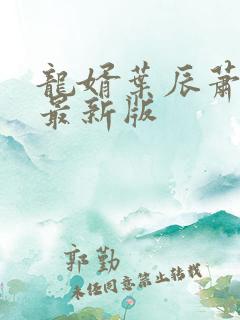 龍婿葉辰蕭
最新版
郭勤
未经同意禁止转载